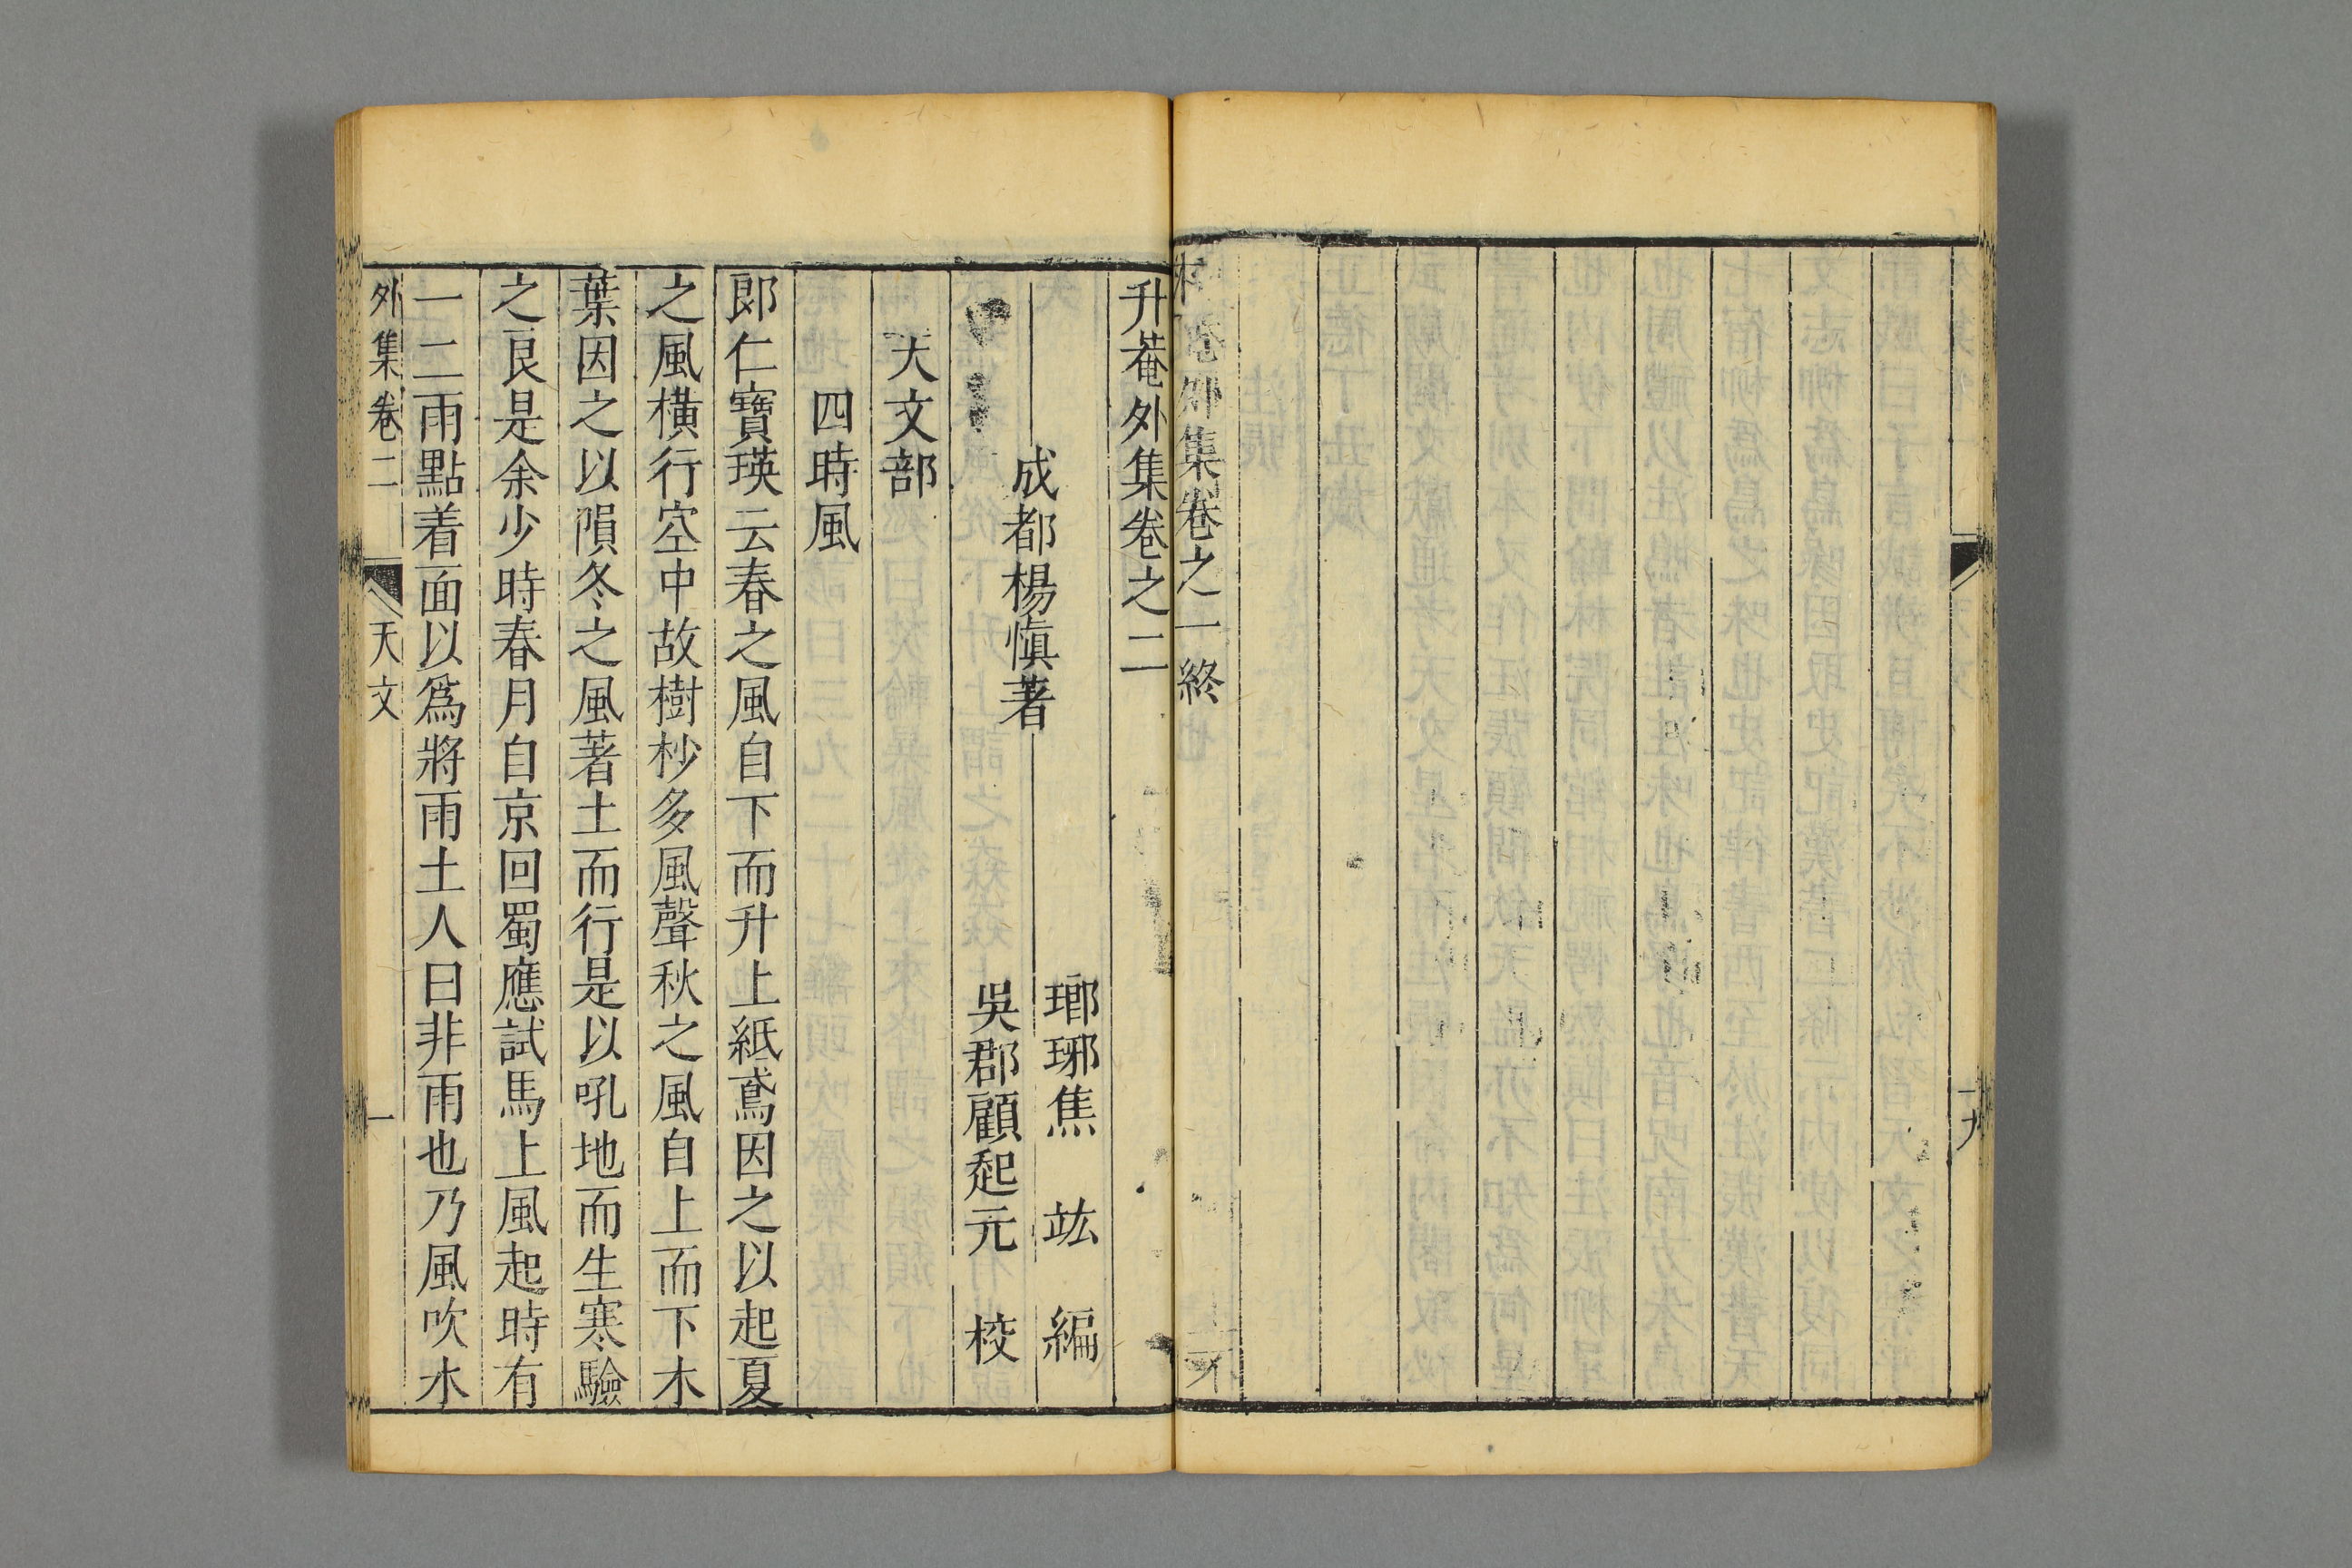 升菴外集卷之一終
十九
升菴外集卷之二
成都楊愼著
瑯琊焦竑編
吳郡顧起元校
天文部
四時風
郎仁寶瑛云春之風自下而升上紙鳶因之以起夏
之風橫行空中故樹杪多風聲秋之風自上而下木
葉因之以隕冬之風著土而行是以吼地而生寒驗
之良是余少時春月自京回蜀應試馬上風起時有
一二雨點着面以爲將雨土人曰非雨也乃風吹水
外集卷二
天文
一